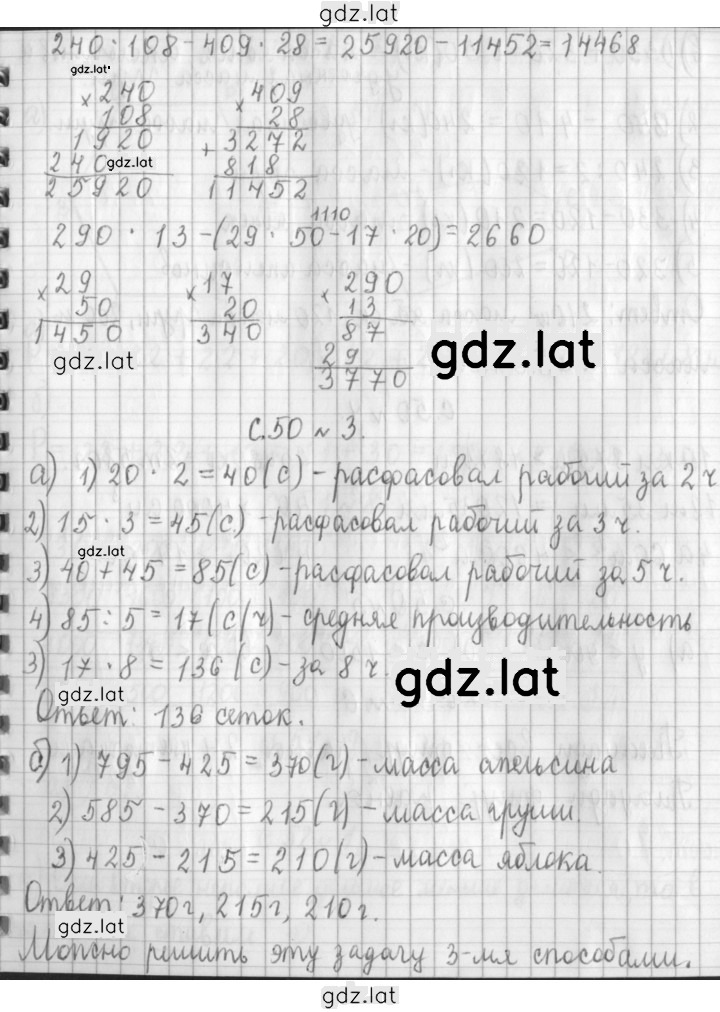 gdz.lat
240 · 108 - 409 · 28 = 25920 - 11452 = 14468
gdz.lat
× 240 × 409
108 28
1920 + 3272
240 gdz.lat 818
25920 11452
1110
290 · 13 - (29 · 50 - 17 · 20) = 2660
× 29 × 17 × 290
50 20 13
1450 340 87
gdz.lat 29 gdz.lat
3770
С.50 № 3.
а) 1) 20 · 2 = 40 (с) - расфасовал рабочий за 2 ч
2) 15 · 3 = 45 (с) - расфасовал рабочий за 3 ч.
gdz.lat
3) 40 + 45 = 85 (с) - расфасовал рабочий за 5 ч.
4) 85 : 5 = 17 (с/ч) - средняя производительность
3) 17 · 8 = 136 (с) - за 8 ч. gdz.lat
gdz.lat
Ответ: 136 сеток.
б) 1) 795 - 425 = 370 (г) - масса апельсина
2) 585 - 370 = 215 (г) - масса груши.
3) 425 - 215 = 210 (г) - масса яблока.
Ответ: 370г, 215г, 210г.
gdz.lat
Можно решить эту задачу 3-мя способами.
gdz.lat